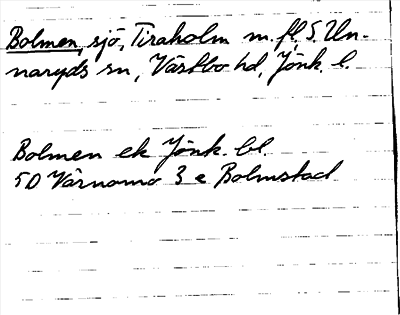 Bolmen, sjö, Tiraholm m. fl. S. Un-
naryds sn, Västbo hd, Jönk. l.
Bolmen ek Jönk. bl.
5D Värnamo 3 e Bolmstad